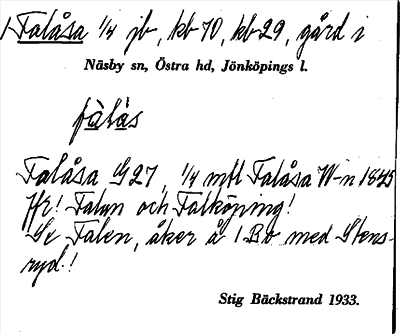 Falåsa 1/4 jb, kb 70, kb 29, gård i
Näsby sn, Östra hd, Jönköpings l.
fàlàs
Falåsa G27, 1/4 mtl Falåsa W-n 1845
Jfr! Falun och Falköping!
Gr Falen, åker å 1 Bo med Stens-
ryd!
Stig Bäckstrand 1933.